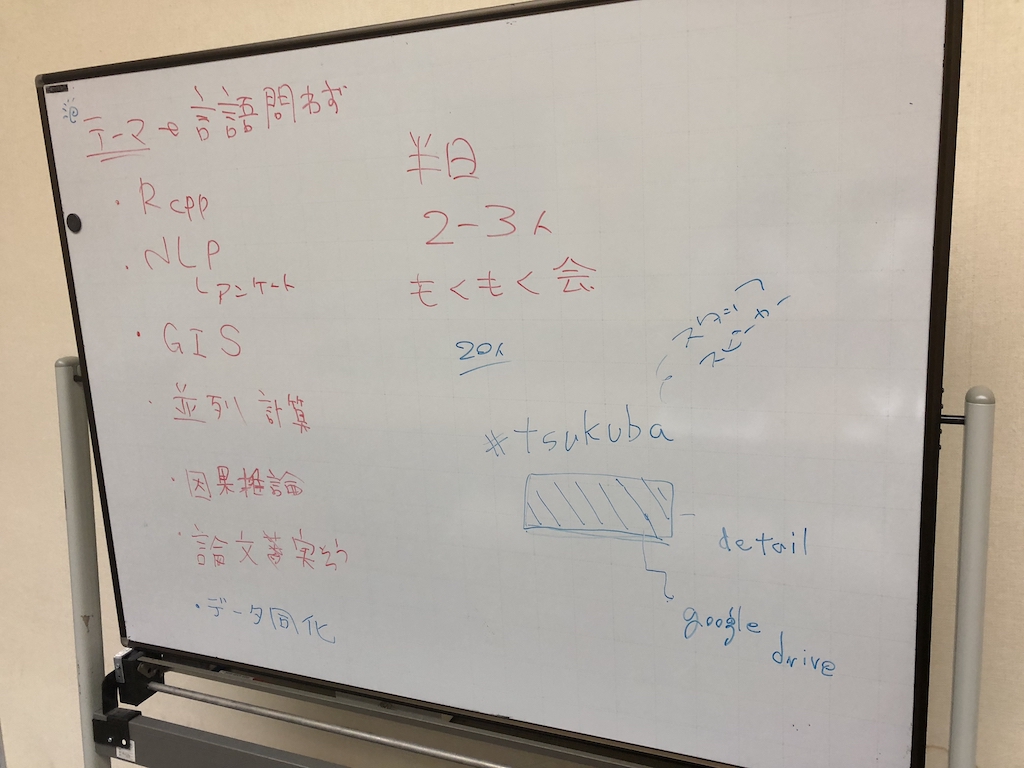 テーマ → 言語問わず
・Rcpp
・NLP
アンケート
・GIS
・並列計算
・因果推論
・論文著実そう
・データ同化
半日
2-3人
もくもく会
20人
#tsukuba
detail
google
drive